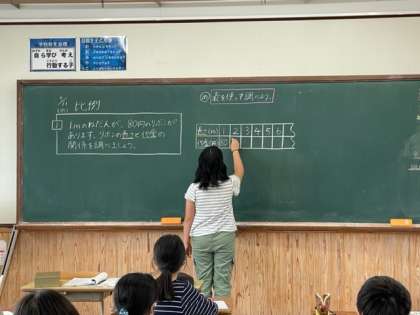 学校教育目標
自ら学び 考え
行動する子
比例
め 表を使って調べよう。
1 1mのねだんが、80円のリボンが
あります。リボンの長さと代金の
関係を調べましょう。
長さ(m) 1 2 3 4 5 6
代金(円) 80